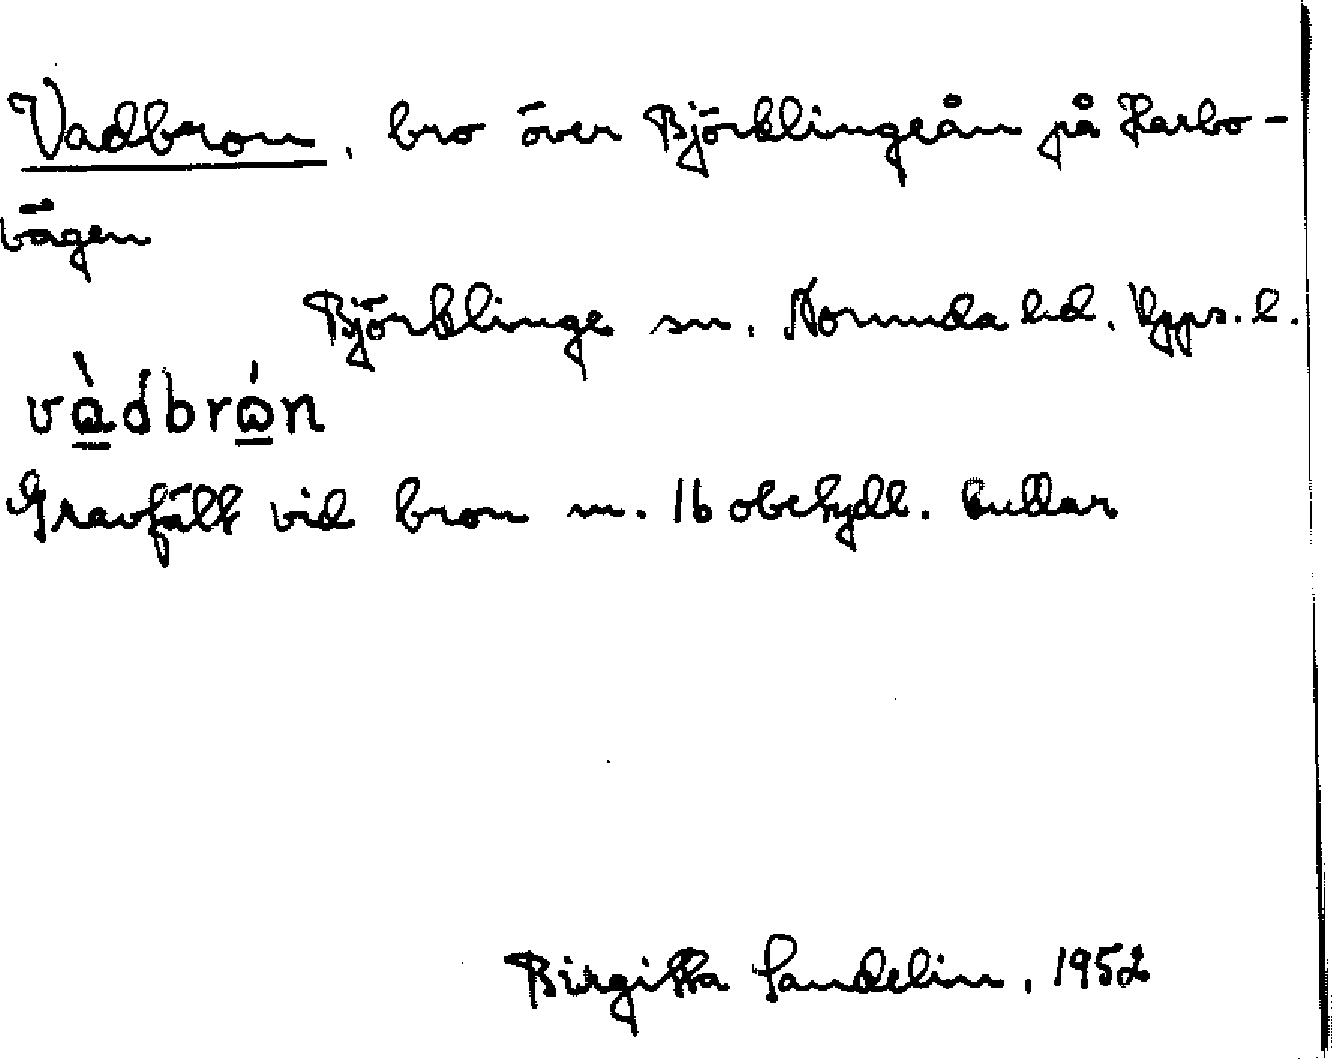 Vadbron, bro över Björklingeån på Harbo-
vägen
Björklinge sn. Norunda hd. Upps. l.
và̱dbrώ̱n
Gravfält vid bron m. 16 obetydl. kullar
Birgitta Sandelin, 1952